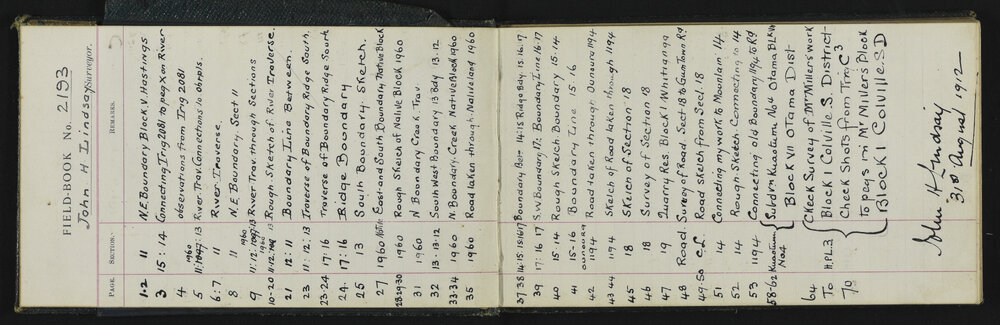 FIELD-BOOK No. 2193
John H Lindsay Surveyor.
PAGE. SECTION. REMARKS.
1-2 11 N.E. Boundary Block V. Hastings
3 15 : 14 Connecting Irng 2081 to peg K on River
4 observations from Irng 2081
5 1960 11:1097: 13 River Trav. Connections to obspls.
6:7 11 River Traverse.
8 11 N.E. Boundary. Sect 11
9 11:12: 1960 River Trav. through Sections
10-20 11:12: 13 Rough Sketch of River Traverse.
21 12 : 11 Boundary Line Between.
23 11 : 12 : 13 Traverse of Boundary Ridge South.
23-24 17 : 16 Traverse of Boundary Ridge South
24. 17 : 16 Ridge Boundary
25 13 South Boundary Sketch.
27 1960 Native East and South Boundary Native Block
28-29-30 1960 Rough Sketch of Native Block 1960
31 1960 N Boundary Creek Trav.
32 13 . 12 South West Boundary 13 Bdy 13.12
33-34 1960 N. Boundary. Creek Native Block 1960
35 1960 Road taken through Native land 1960
37-38 14:15:16:17 Boundary Betn 14:15 Ridge Bdy. 15:16.17
39 17: 16 17 S.W Boundary 17: Boundary Line 16.17
40 15 : 14 Rough Sketch Boundary 15.14
41 15-16 Boundary Line 15 16
42 1194 Road taken through Oonoura 1194
43 44 1194 Sketch of Road taken through 1194
45 18 Sketch of Section 18
46 18 Survey of Section 18
47 19 Quarry Res. Block I Whitianga
48 Road Survey of Road. Sect 18 to Gumtown Rd
49-50 C.L. Road Sketch from Sec 18
51 14 Connecting my work to Mountain 14
52 14 Rough Sketch Connecting to 14
53 1194 Connecting old Boundary 1194 to Rd
58-62 Kuaotunu No4 Subdvn Kuaotunu No4 Otama Blk VII
Block VII Otama Dist
64 To 70 H.PL.3 Check Survey of Mr Millers work
Block I Colville S. District
Check Shots from Trav C3
to pegs in Mr Millers Block
Block I Colville S.D
John H Lindsay
31st August 1912